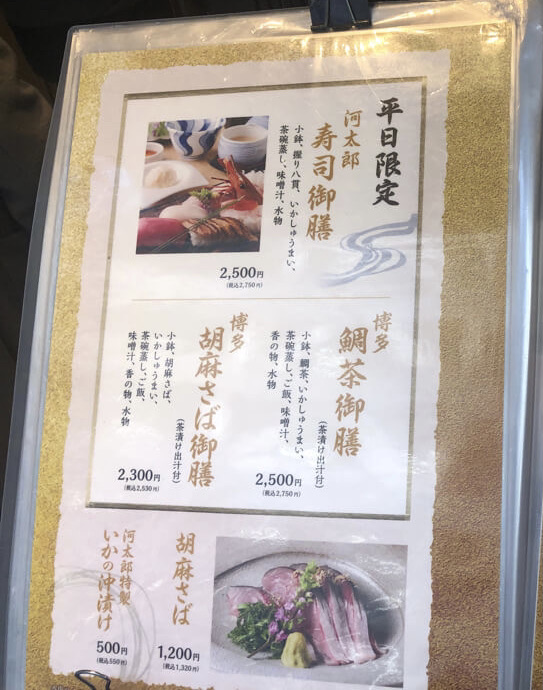 平日限定
河太郎
寿司御膳
小鉢、握り八貫、いかしゅうまい、
茶碗蒸し、味噌汁、水物
2,500円
(税込2,750円)
博多
鯛茶御膳
(茶漬け出汁付)
小鉢、鯛茶、いかしゅうまい、
茶碗蒸し、ご飯、味噌汁、
香の物、水物
2,500円
(税込2,750円)
博多
胡麻さば御膳
(茶漬け出汁付)
小鉢、胡麻さば、
いかしゅうまい、
茶碗蒸し、ご飯、
味噌汁、香の物、水物
2,300円
(税込2,530円)
胡麻さば
1,200円
(税込1,320円)
河太郎特製
いかの沖漬け
500円
(税込550円)